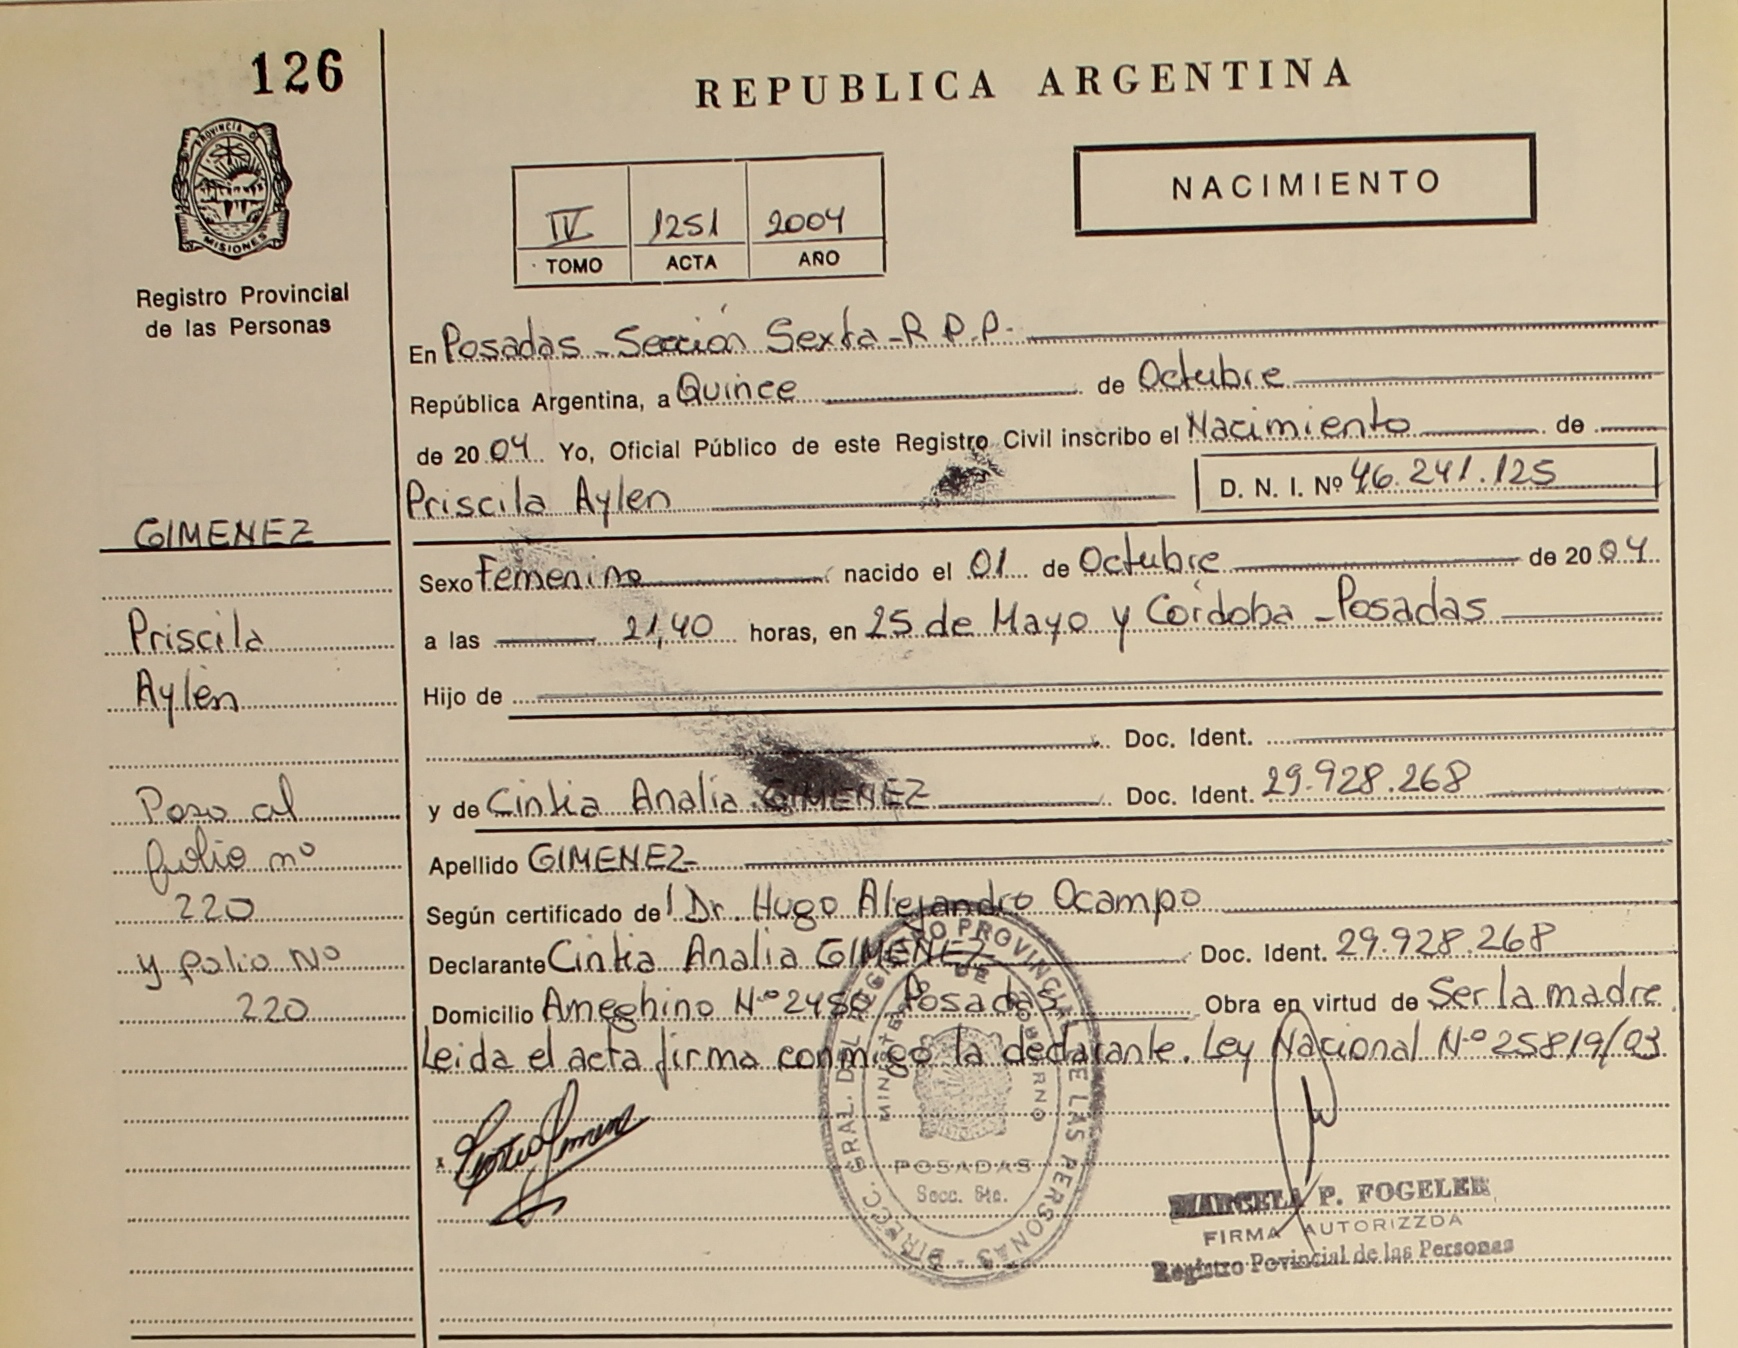 126
PROVINCIA DE
MISIONES
Registro Provincial
de las Personas
GIMENEZ
Priscila
Aylen
Paso al
folio nº
220
y folio Nº
220
REPUBLICA ARGENTINA
IV 1251 2004
TOMO ACTA AÑO
NACIMIENTO
En Posadas - Sección Sexta - R.P.P.
República Argentina, a Quince de Octubre
de 2004 Yo, Oficial Público de este Registro Civil inscribo el Nacimiento de
Priscila Aylen D. N. I. Nº 46.241.125
Sexo Femenino nacido el 01 de Octubre de 2004
a las 21,40 horas, en 25 de Mayo y Córdoba - Posadas
Hijo de
Doc. Ident.
y de Cintia Analia GIMENEZ Doc. Ident. 29.928.268
Apellido GIMENEZ
Según certificado del Dr. Hugo Alejandro Ocampo
Declarante Cintia Analia GIMENEZ Doc. Ident. 29.928.268
Domicilio Ameghino Nº 2450 Posadas Obra en virtud de Ser la madre
Leida el acta firma conmigo la declarante. Ley Nacional Nº 25819/03
DIRECC. GRAL. DEL REGISTRO PROVINCIAL DE LAS PERSONAS
MINISTERIO DE GOBIERNO
POSADAS
Secc. 6ta.
MARCELA P. FOGELER
FIRMA AUTORIZZDA
Registro Povincial de las Personas